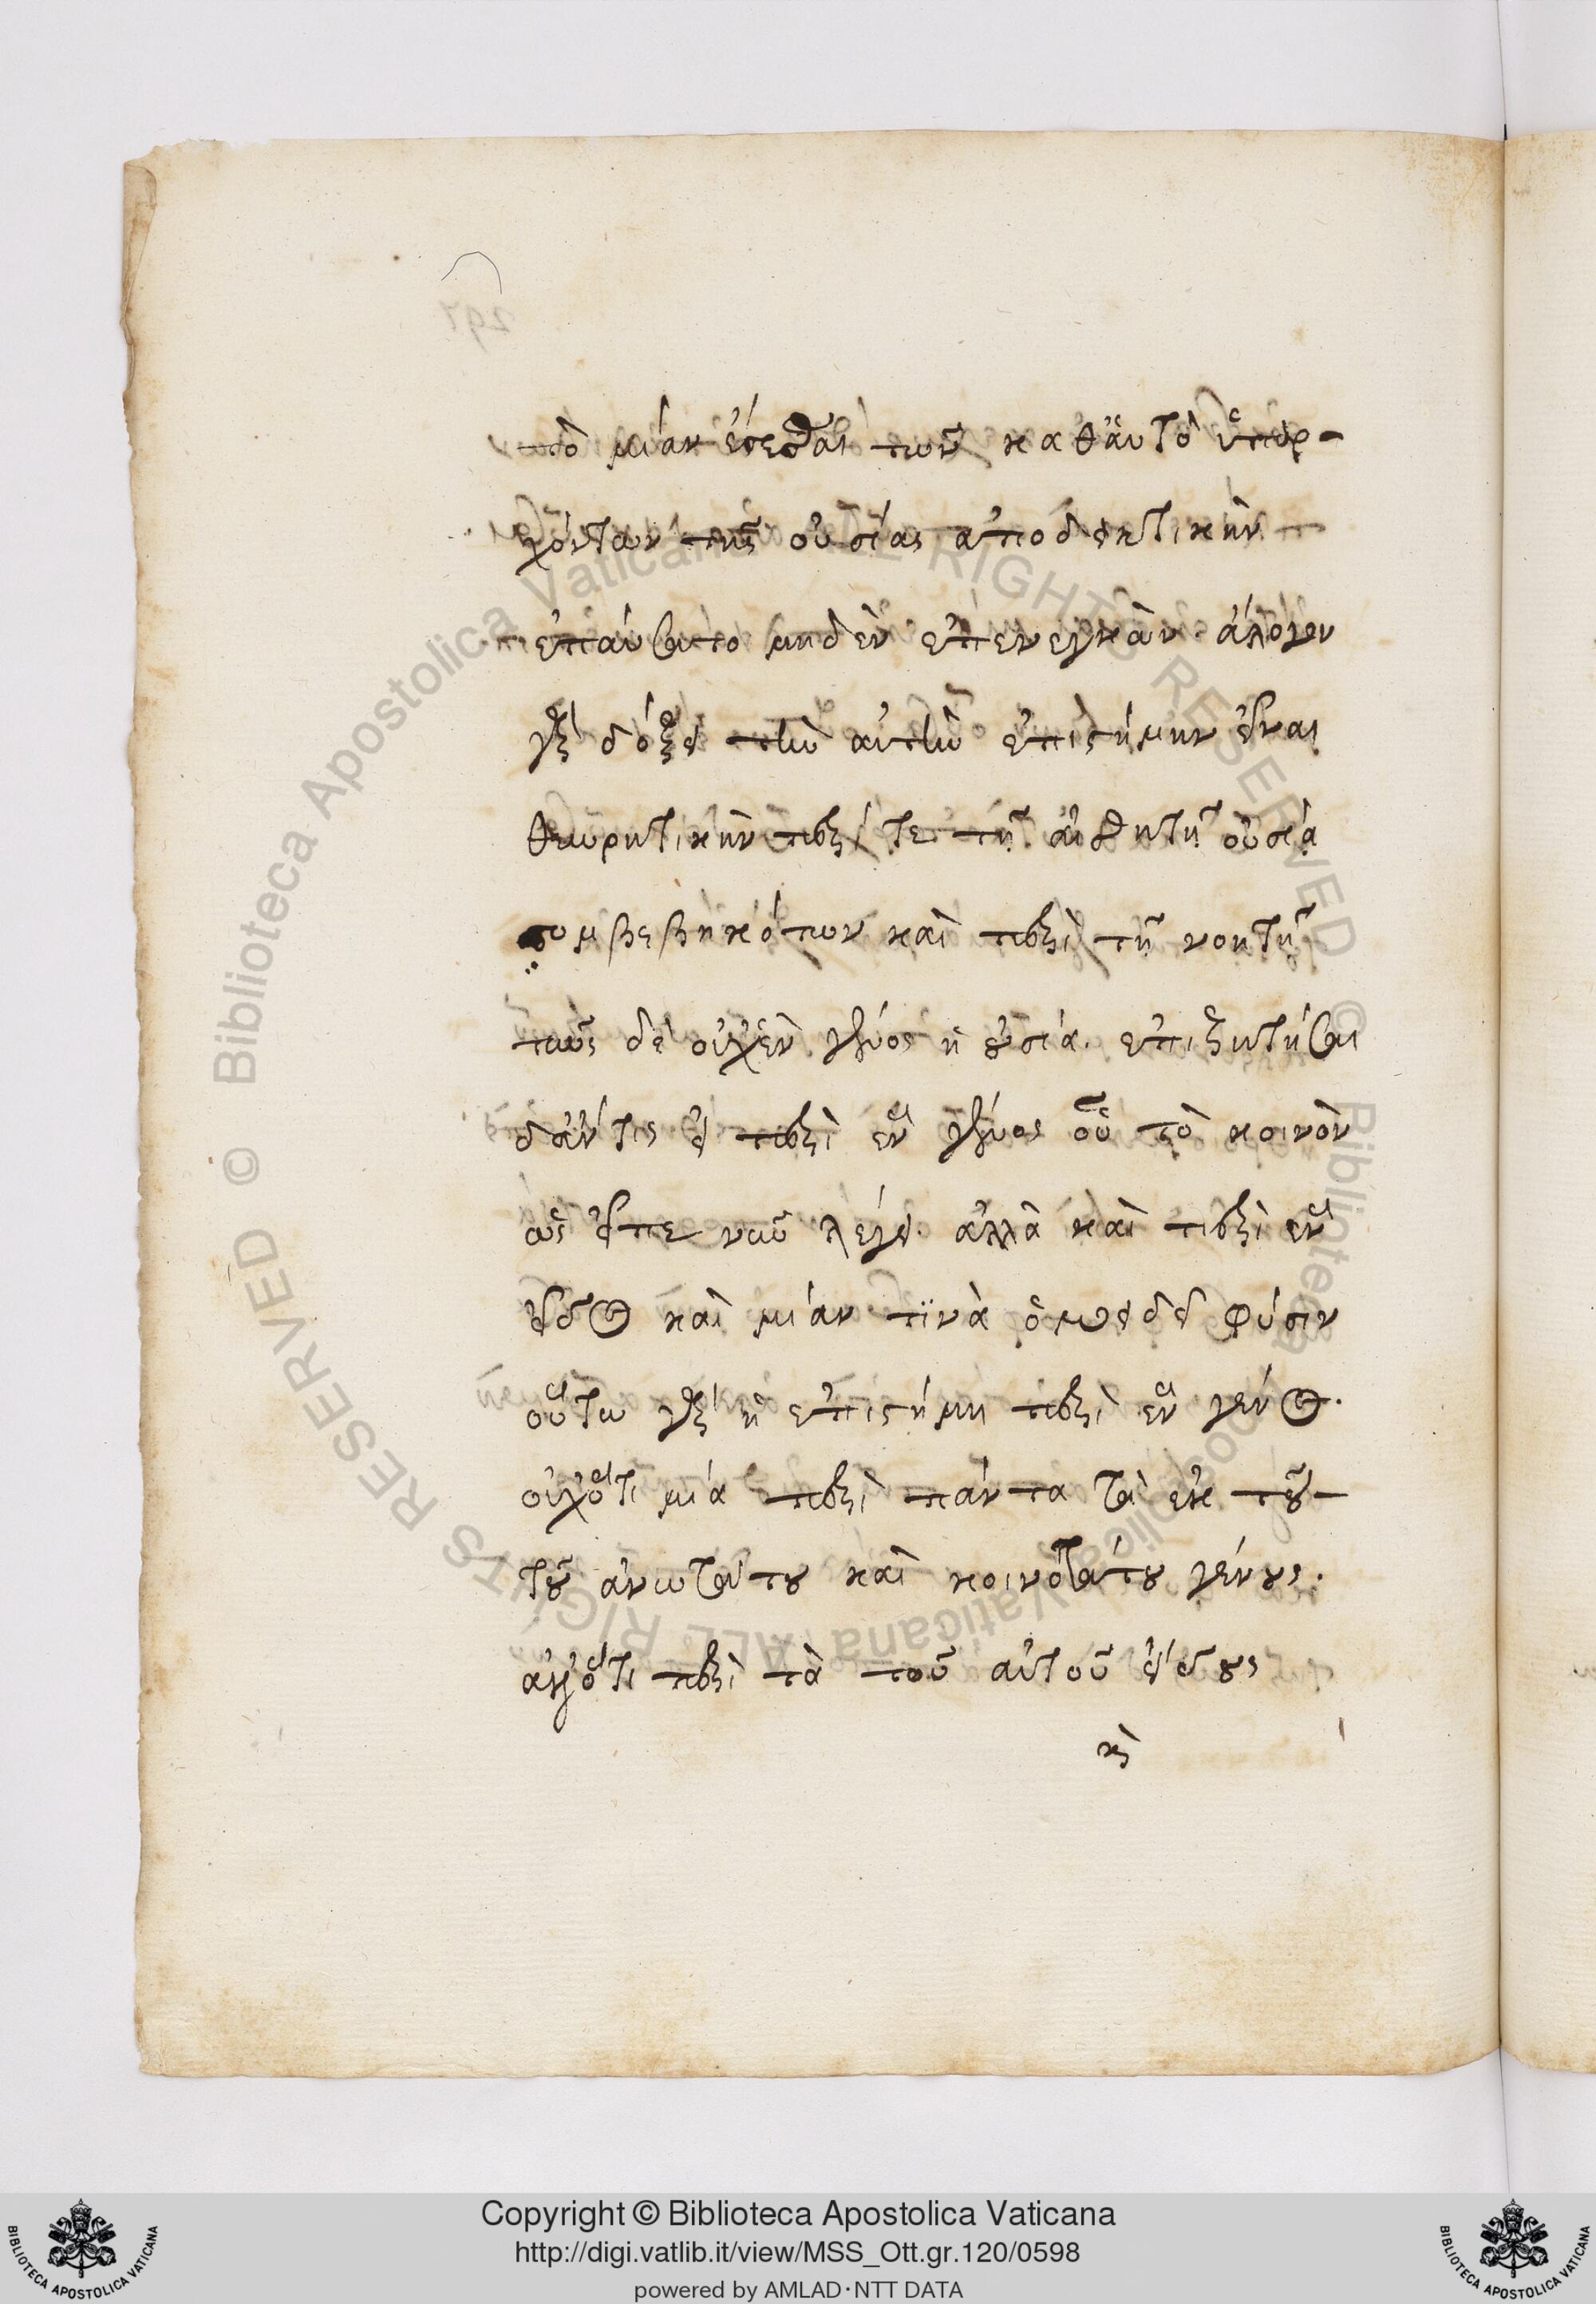 τὸ μίαν ἔσεσθαι τῶν καθ' αὑτὸ ὑπαρ-
χόντων τῆς οὐσίας ἀποδεικτικὴν
ἐπαύσατο μηδὲν ἐπενεγκὼν ἄλογον
γὰρ δόξει τὴν αὐτὴν ἐπιστήμην εἶναι
θεωρητικὴν περί τε τῇ αἰσθητῇ οὐσίᾳ
συμβεβηκότων καὶ περὶ τῇ νοητῇ
πῶς δὲ οὐχ ἓν γένος ἡ οὐσία. ἐπιζητήσαι
δ' ἄν τις εἰ περὶ ἓν γένος οὗ τὸ κοινὸν
ὡς εἶπε νῦν λέγει. ἀλλὰ καὶ περὶ ἓν
εἶδος καὶ μίαν τινὰ ὁμοειδεῖ φύσιν
οὕτω γὰρ ἡ ἐπιστήμη περὶ ἓν γένος.
οὐχ ὅτι μία περὶ πάντα τὰ ἐκ τοῦ-
τοῦ ἀνωτάτου καὶ κοινοτάτου γένους.
ἀλλ' ὅτι περὶ τὰ τοῦ αὐτοῦ εἴδους
καὶ
Copyright © Biblioteca Apostolica Vaticana
http://digi.vatlib.it/view/MSS_Ott.gr.120/0598
powered by AMLAD·NTT DATA
BIBLIOTECA APOSTOLICA VATICANA
BIBLIOTECA APOSTOLICA VATICANA
© Biblioteca Apostolica Vaticana ALL RIGHTS RESERVED © Biblioteca Apostolica Vaticana ALL RIGHTS RESERVED